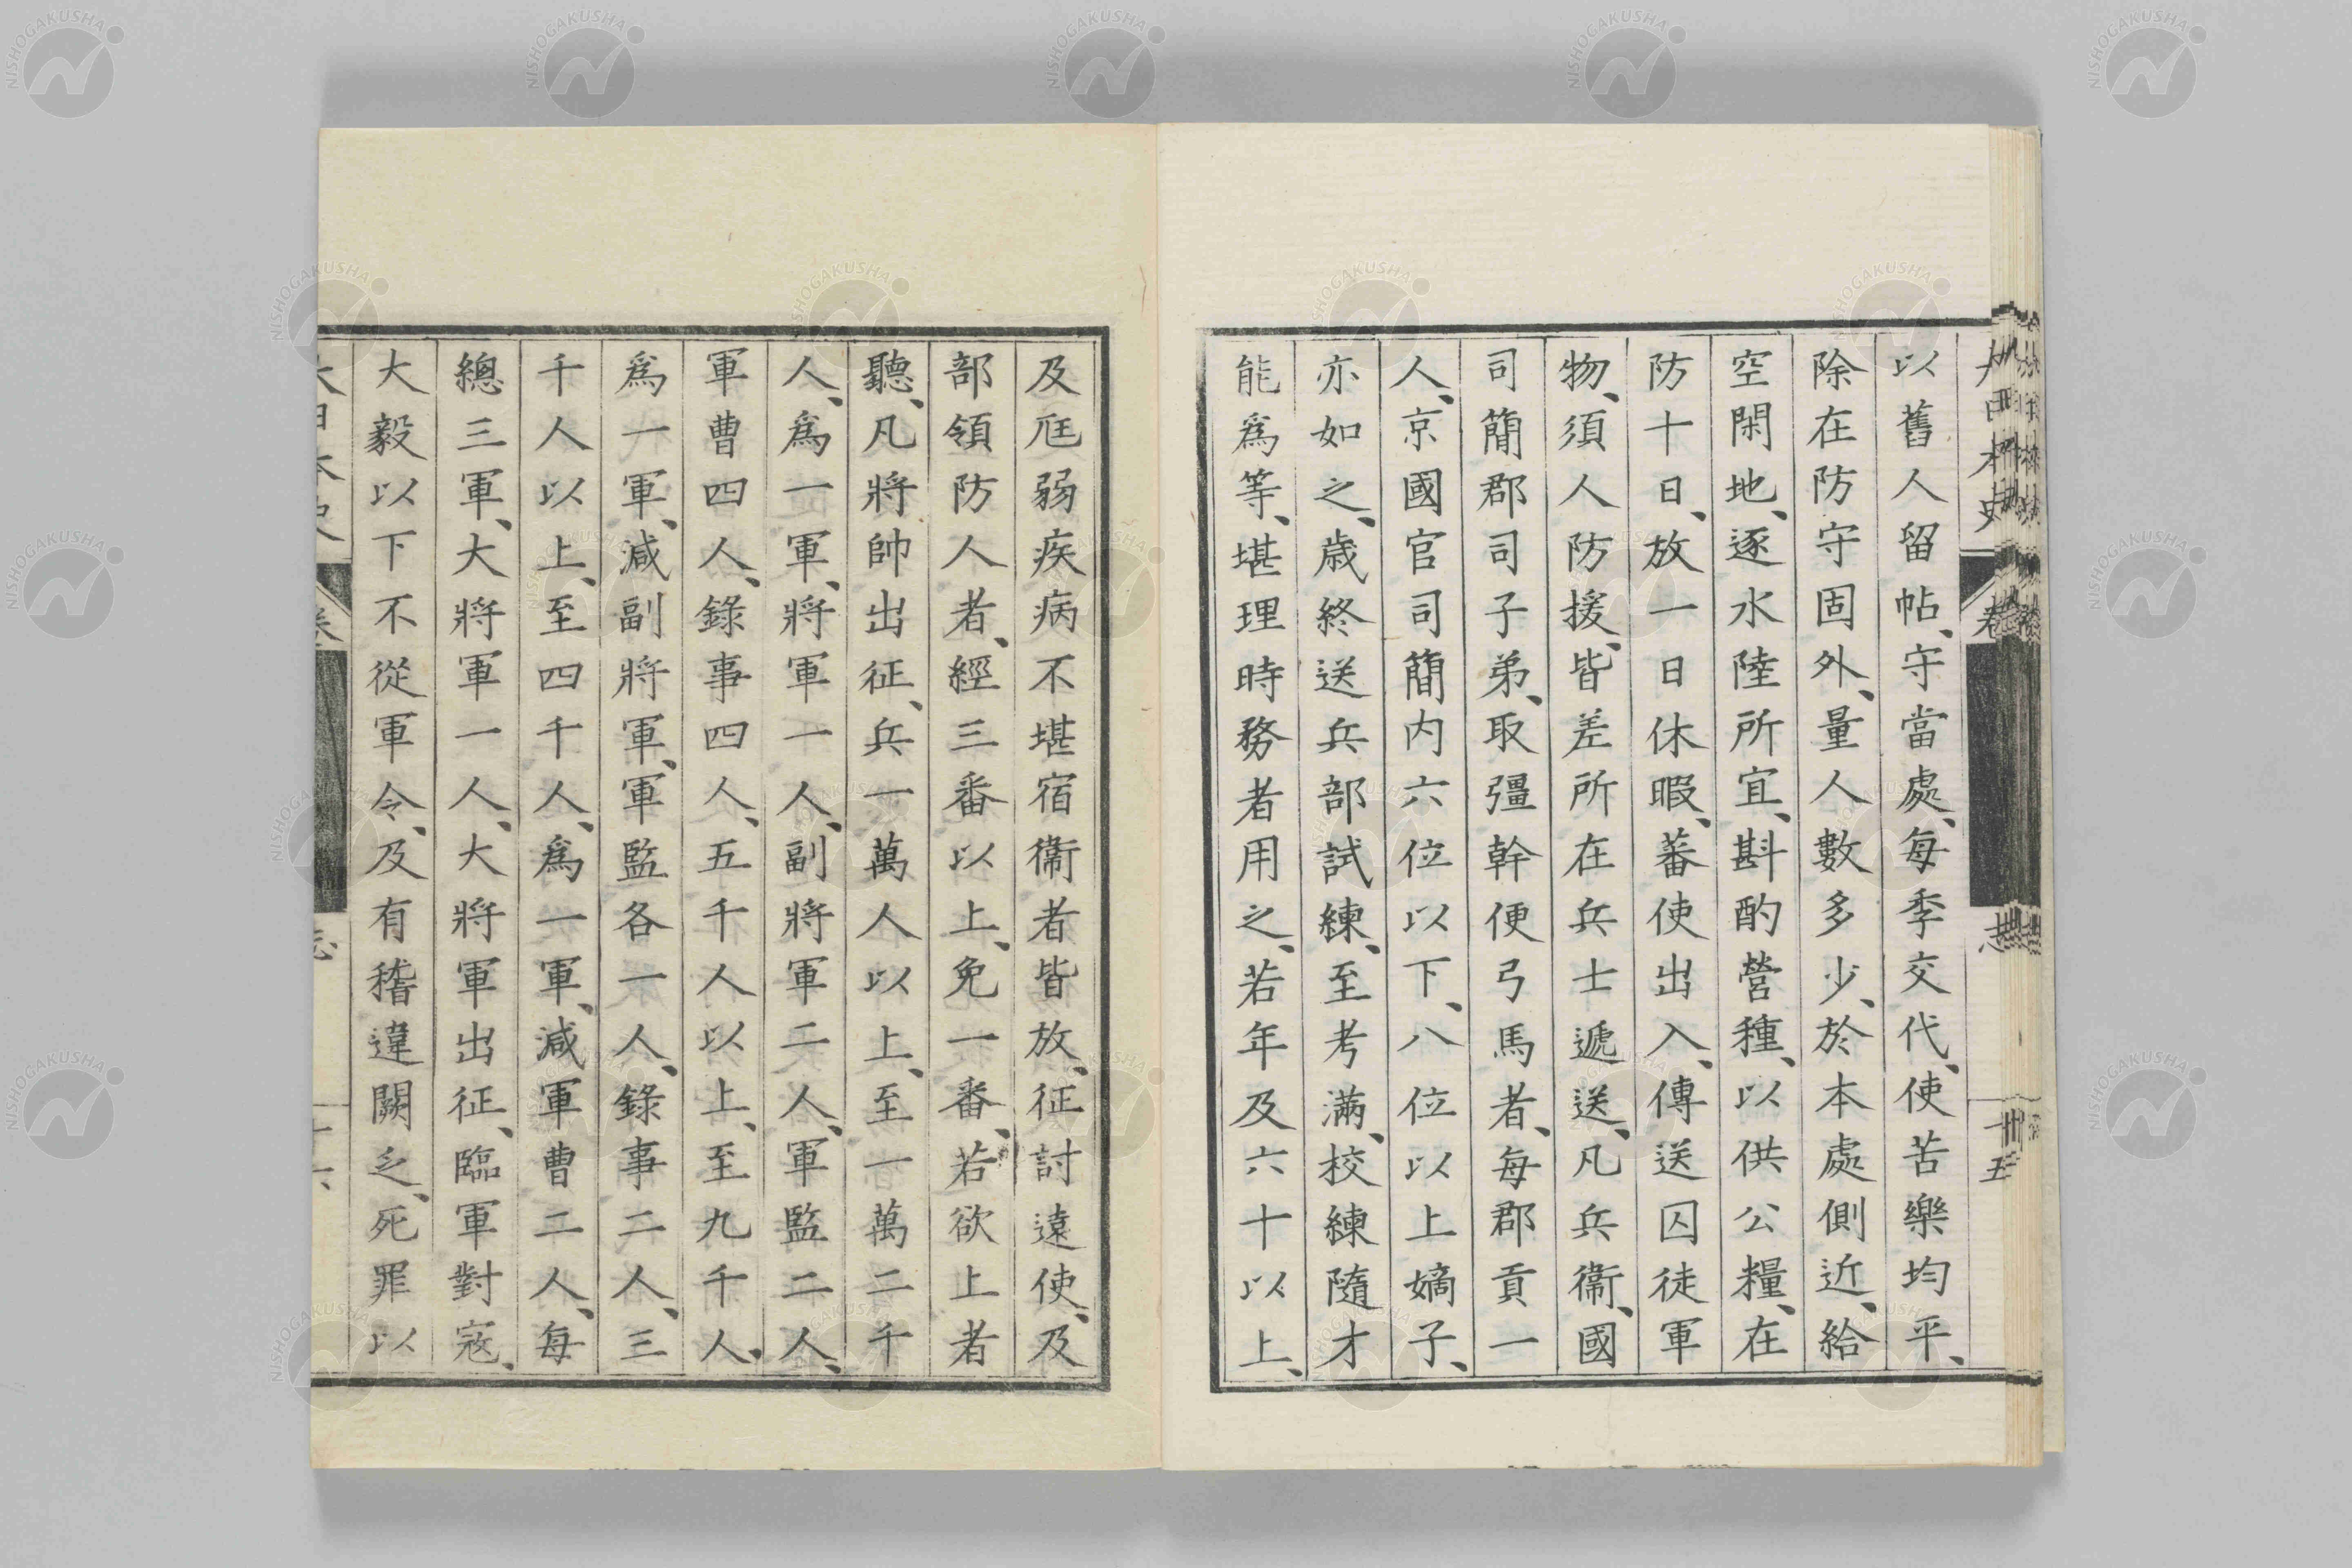 以舊人留帖、守當處、每季交代、使苦樂均平、
除在防守固外、量人數多少、於本處側近、給
空閑地、逐水陸所宜、斟酌營種、以供公糧、在
防十日、放一日休暇、蕃使出入、傳送囚徒軍
物、須人防援、皆差所在兵士遞送、凡兵衞、國
司簡郡司子弟、取彊幹便弓馬者、每郡貢一
人、京國官司簡内六位以下、八位以上嫡子、
亦如之、歲終送兵部試練、至考滿、校練隨才
能爲等、堪理時務者用之、若年及六十以上、
及尫弱疾病不堪宿衞者皆放、征討遠使、及
部領防人者、經三番以上、免一番、若欲上者
聽、凡將帥出征、兵一萬人以上、至一萬二千
人、爲一軍、將軍一人、副將軍二人、軍監二人、
軍曹四人、錄事四人、五千人以上、至九千人、
爲一軍、減副將軍、軍監各一人、錄事二人、三
千人以上、至四千人、爲一軍、減軍曹二人、每
總三軍、大將軍一人、大將軍出征、臨軍對寇、
大毅以下不從軍令、及有稽違闕乏、死罪以
大日本史
卷
志
十五
大日本史
卷
志
十六
NISHOGAKUSHA